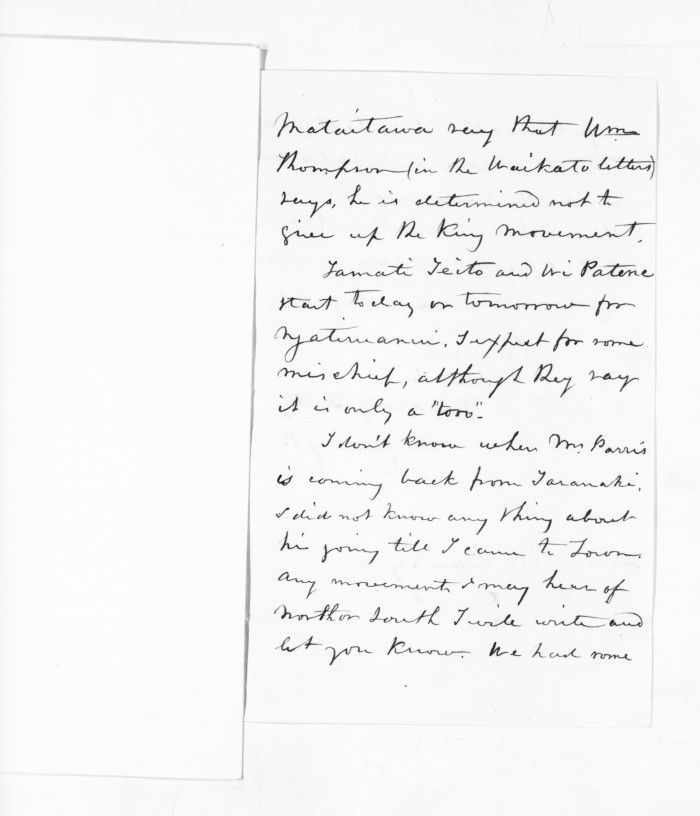 Mataitawa say that Wm
Thompson (in the Waikato letters)
says, he is determined not to
give up the King movement.
Tamati Teito and Wi Patene
start today or tomorrow for
Ngatiruanui. I expect for some
mischief, although they say
it is only a "toro".
I don't know when Mr. Parris
is coming back from Taranaki.
I did not know any thing about
his going till I came to Town.
Any movements I may hear of
North or South I will write and
let you know. We had some